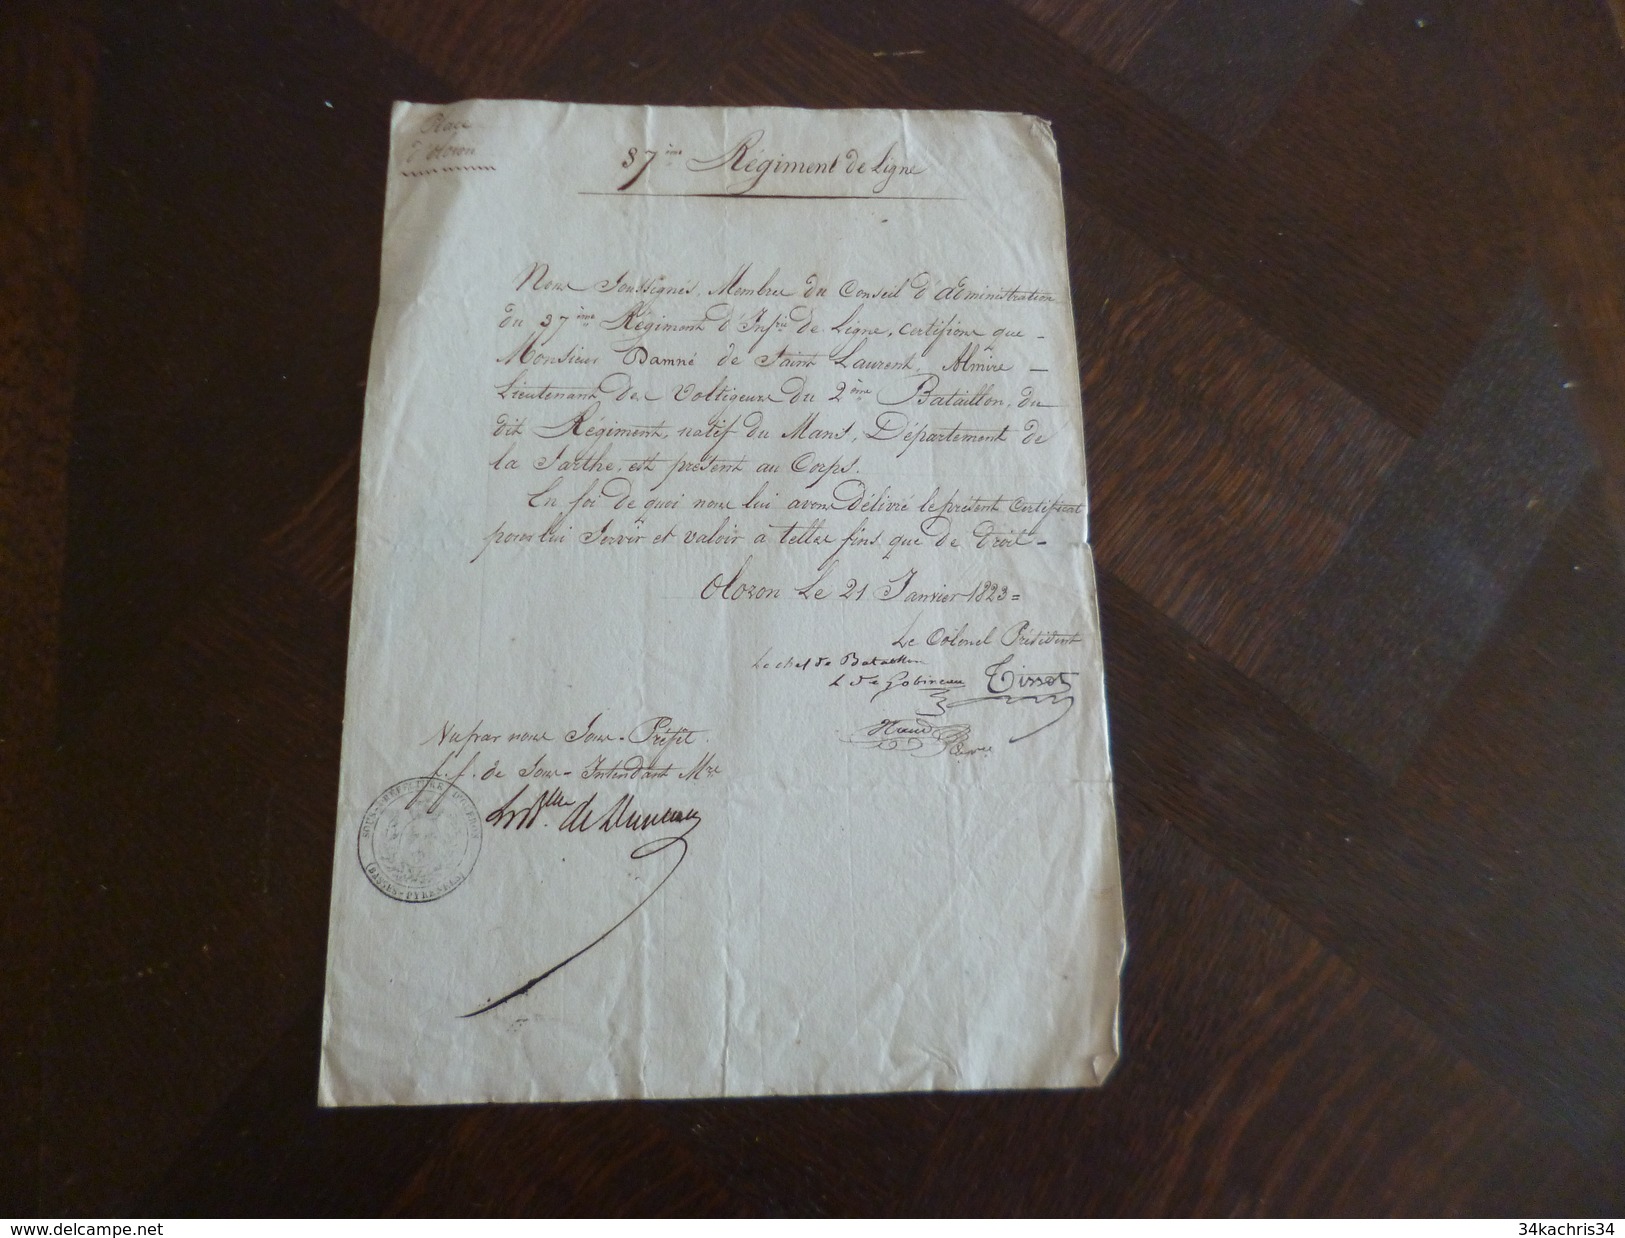 Place
d'oloron
37 ème Régiment de Ligne
Nous Soussignés, Membres du Conseil d'administration
du 37 ème Régiment d'Infrie de Ligne, certifions que -
Monsieur Damné de Saint Laurent, Almire -
Lieutenant des Voltigeurs du 2 ème Bataillon, du
dit Régiment, natif du Mans, Département de
la Sarthe, est présent au Corps.
En foi de quoi nous lui avons délivré le présent Certificat
pour lui Servir et valoir a telles fins que de droit -
Oloron Le 21 Janvier 1823 =
Le Colonel Président
Le chef de Bataillon
L de Gobineau
Tissot
Vu par nous Sous-Préfet
f. f. de Sous-Intendant Mre
SOUS-PRÉFECTURE D'OLERON
(BASSES-PYRÉNÉES)
www.delcampe.net
34kachris34